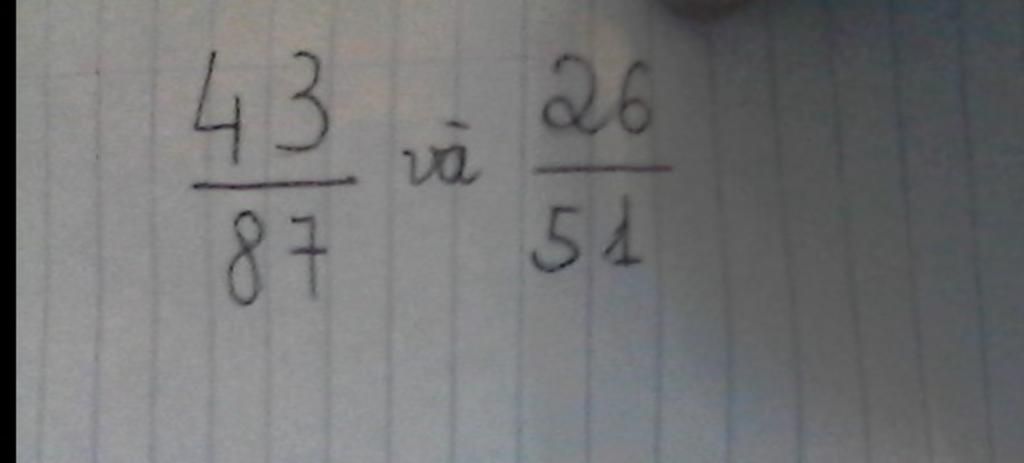 43/87 và 26/51